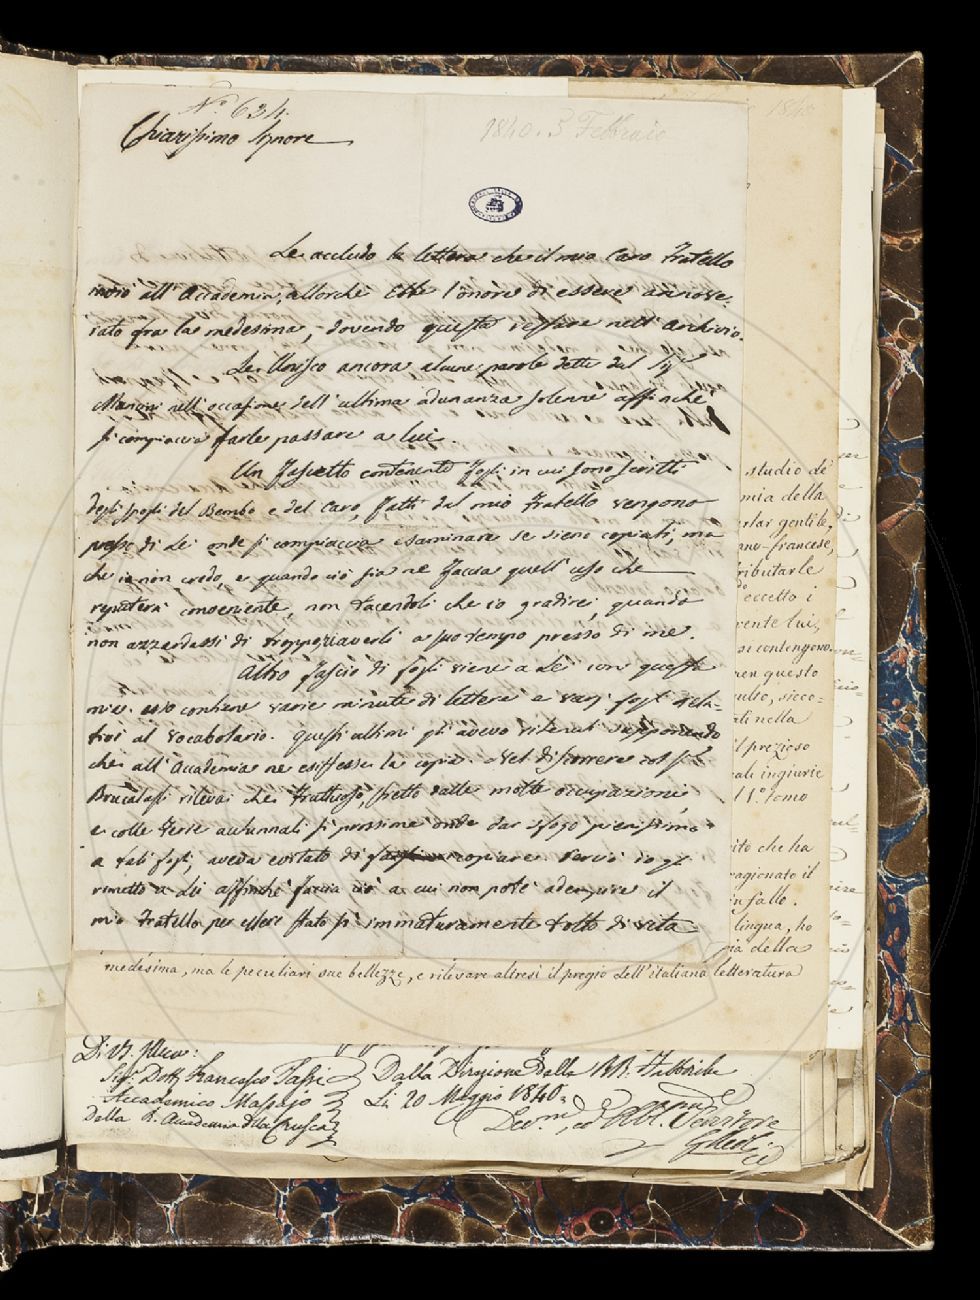 N.° 634.
Chiarissimo Signore
1840. 3 Febbraio
1840
Le accludo la lettera che il mio Caro Fratello
inviò all'Accademia, allorchè ebbe l'onore di essere annove-
rato fra la medesima, dovendo questa restare nell'Archivio.
Le Unisco ancora alcune parole dette dal Sig.
Mancini nell'occasione dell'ultima adunanza solenne affinchè
si compiaccia farle passare a lui.
Un Fascetto contenente Fogli in cui sono scritti
degli spogli del Bembo e del Caro, fatti dal mio Fratello vengono
presso di Lei onde si compiaccia esaminare se sieno copiati, ma
che io non credo, e quando ciò sia ne faccia quell'uso che
reputerà conveniente, non tacendoli che io gradirei, quando
non azzardassi di troppo, riaverli a suo tempo presso di me.
Altro fascio di fogli viene a Lei con questa
mia. esso contiene varie minute di lettere e varj fogli rela-
tivi al Vocabolario. questi ultimi gli avevo ritenuti supponendo
che all'Accademia ne esistesse la copia. Nel discorrere col Sig.
Brucalassi rilevai che Fruttuoso, stretto dalle molte occupazioni,
e colle ferie autunnali sì prossime onde dar sfogo pienissimo
a tali fogli, aveva evitato di copiare perciò io gli
rimetto a Lei affinchè faccia ciò a cui non potè adempire il
mio Fratello per essere stato sì immaturamente tolto di vita
studio de'
mia della
parlar gentile,
ano-francese,
tributarle
eccetto i
vente lui,
se contengono.
questo
sicco-
nella
il prezioso
ingiurie
1.° tomo
ito che ha
ragionato il
in fallo.
lingua, ho
pia della
medesima, ma le peculiari sue bellezze, e rilevare altresì il pregio dell'italiana letteratura
Di VS. Illma:
Sig. Dott. Francesco Tassi
Accademico Massajo
Della R. Accademia della Crusca
Dalla Direzione della RR. Fabbriche
Li 20 Maggio 1840.